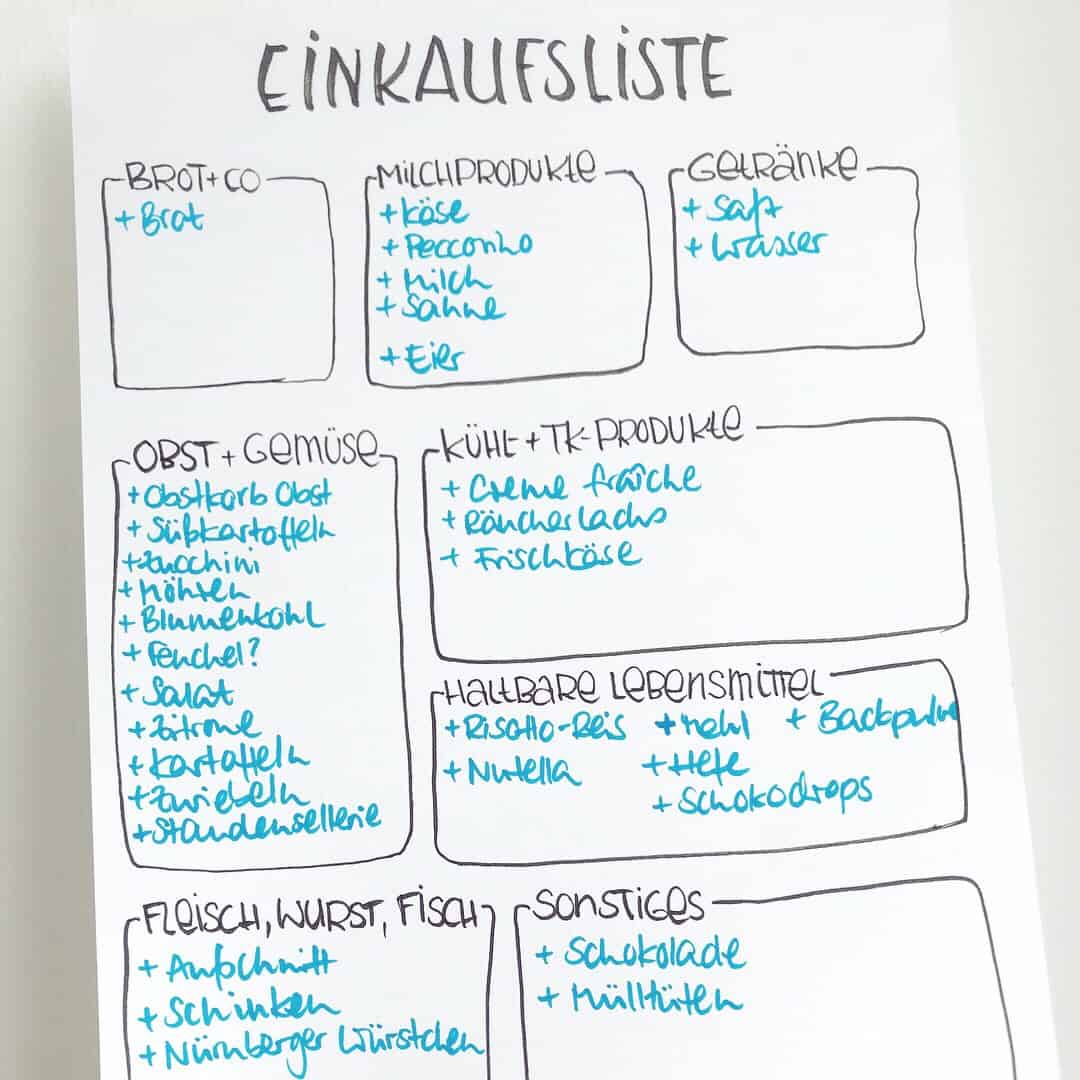 EINKAUFSLISTE
BROT + CO
+ Brot
MILCHPRODUKTE
+ Käse
+ Pecconino
+ Milch
+ Sahne
+ Eier
GETRÄNKE
+ Saft
+ Wasser
OBST + GEMÜSE
+ Obstkorb Obst
+ Süßkartoffeln
+ Zucchini
+ Möhren
+ Blumenkohl
+ Fenchel?
+ Salat
+ Zitrone
+ Kartoffeln
+ Zwiebeln
+ Staudensellerie
KÜHL + TK-PRODUKTE
+ Creme fraîche
+ Räucherlachs
+ Frischkäse
HALTBARE LEBENSMITTEL
+ Risotto-Reis + Mehl + Backpulve
+ Nutella + Hefe
+ Schokodrops
FLEISCH, WURST, FISCH
+ Aufschnitt
+ Schinken
+ Nürnberger Würstchen
SONSTIGES
+ Schokolade
+ Mülltüten